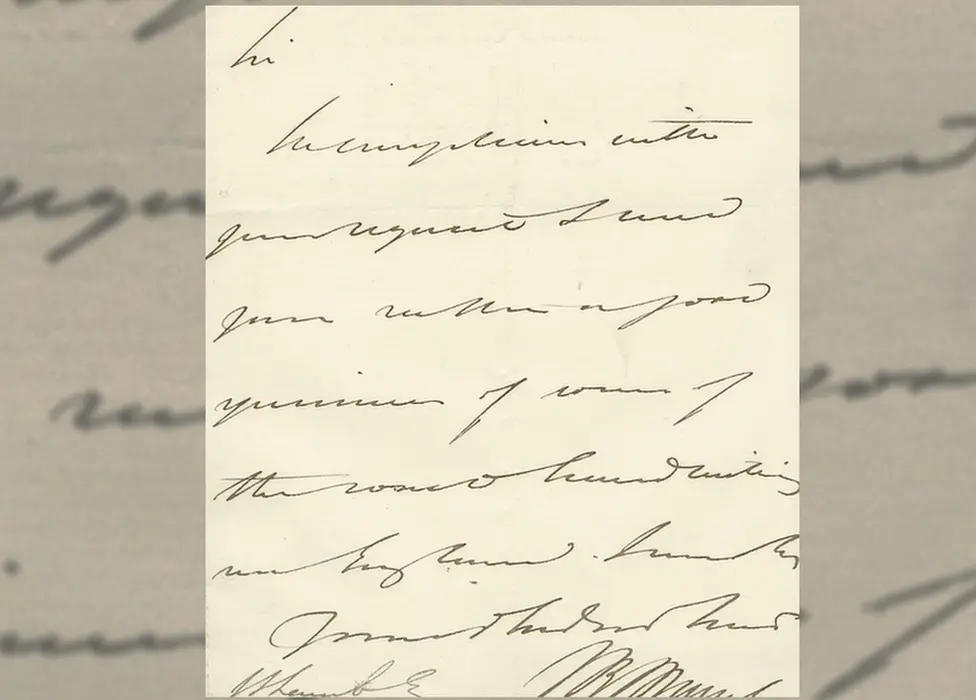 Sir
In compliance with
your request I send
you rather a good
specimen of some of
the worst handwriting
in England. I am Sir
Your obedient Servt